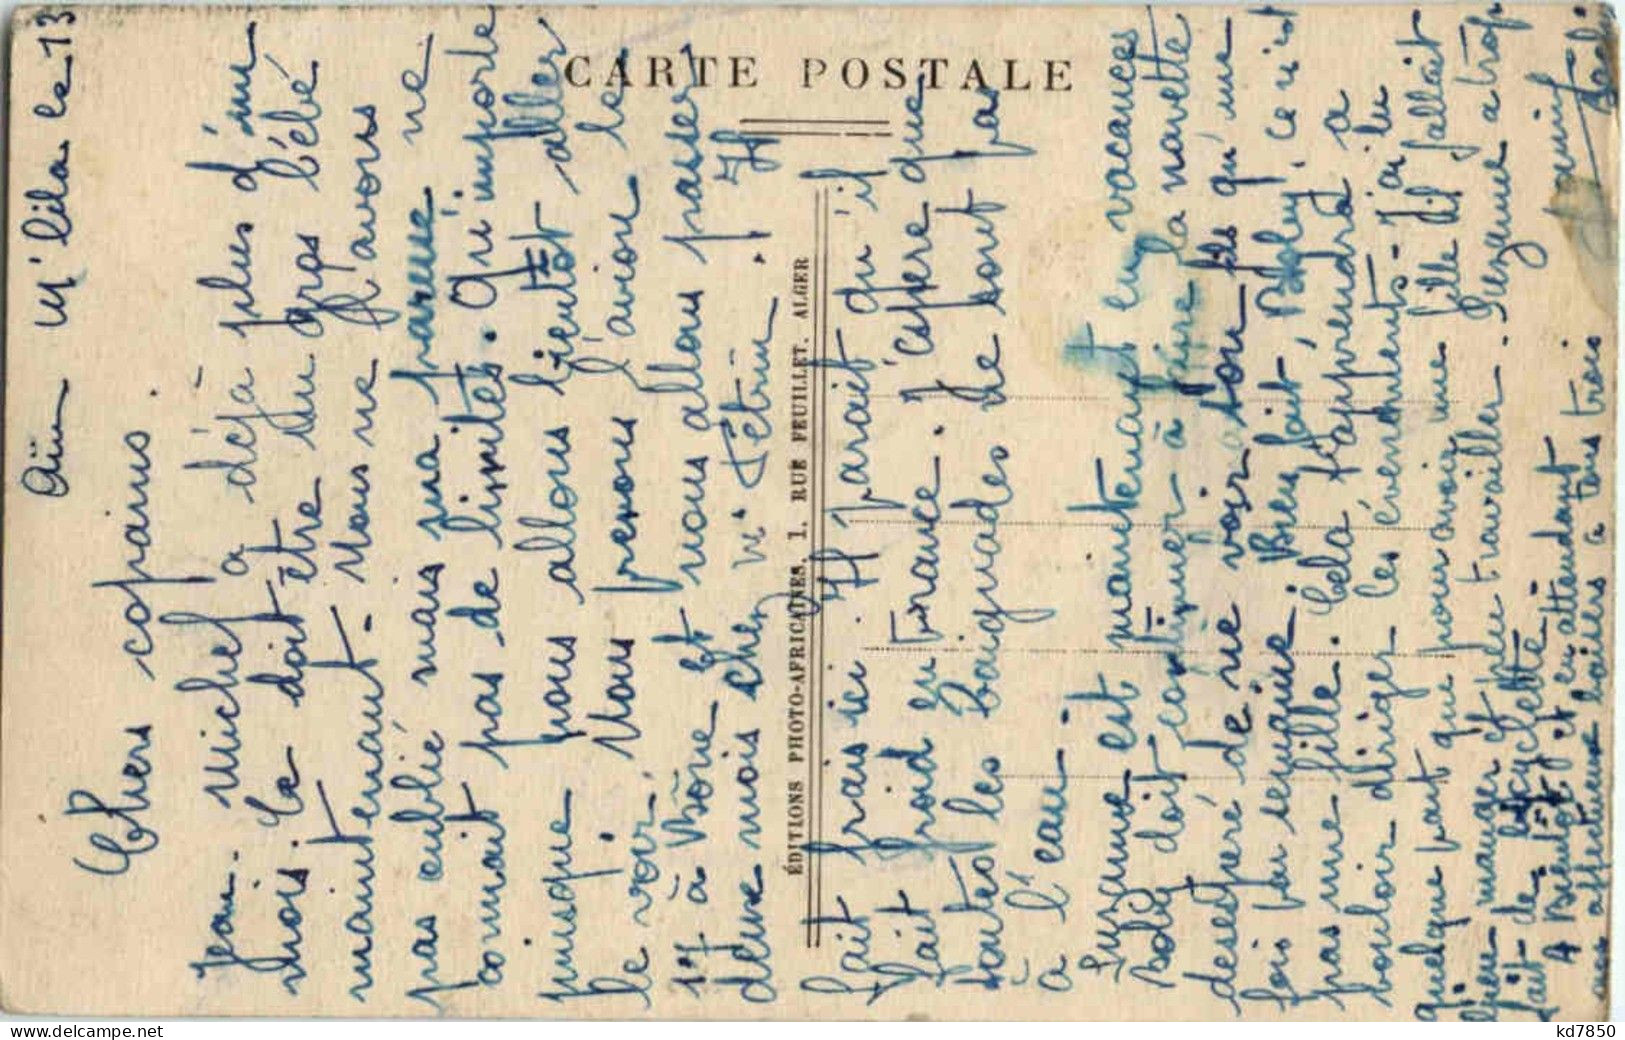 Aïn M'lila le 13
Chers copains.
Jean. Michel a déjà plus d'un
mois. Ce doit être du gros bébé
maintenant. Nous ne l'avons
pas oublié mais ma parene ne
connait pas de limites. Qu'importe
puisque nous allons bientôt aller
le voir. Nous prenons l'avion le
17 à Bône et nous allons passer
deux mois chez Mr Pétrin. Il
fait frais ici. Il parait qu'il
fait froid en France. J'espère que
toutes les baignades ne sont pas
à l'eau.
Suzanne est maintenant en vacances
Boby doit continuer à faire la navette
desespéré de ne voir son fils qu'une
fois par semaine. Bien fait, Boby, ce n'est
pas une fille. Cela t'apprendra à
vouloir diriger les évenements - J'ai lu
quelque part que pour avoir une fille il fallait
bien manger et peu travailler. Suzanne a trop
fait de bicyclette
A Bientôt et en attendant
nos affectueux baisers a tous trois
CARTE POSTALE
ÉDITIONS PHOTO-AFRICAINES, 1, RUE FEUILLET. ALGER
kd7850